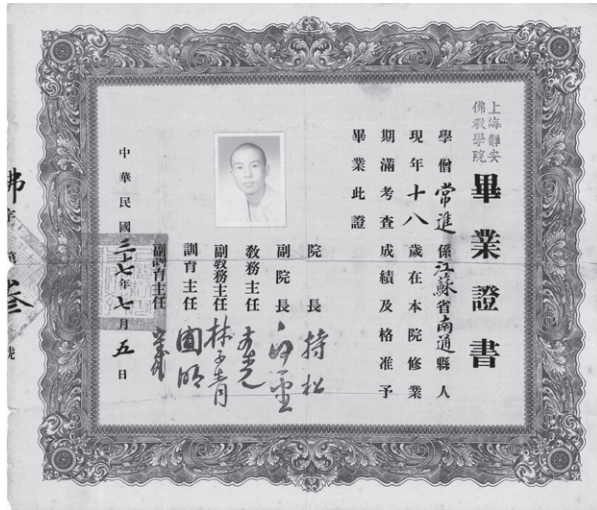 上海靜安
佛教學院
畢業證書
學僧常進係江蘇省南通縣人
現年十八歲在本院修業
期滿考查成績及格准予
畢業此證
院長 持松
副院長
教務主任
副教務主任 林子青
訓育主任 圓明
副訓育主任
中華民國三十七年七月五日
佛字第叁號